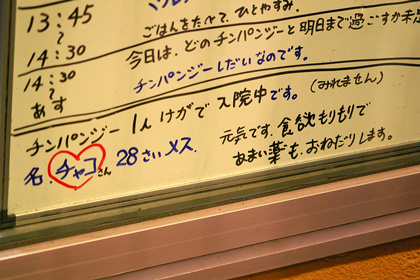 13:45
〜
14:30
ごはんをたべて、ひとやすみ。
14:30
〜
あす
今日は、どのチンパンジーと明日まで過ごすか未定
チンパンジーしだいなのです。
チンパンジー 1人 けがで 入院中です。(みれません)
名.チャコさん 28さい メス.
元気です。食欲もりもりで
あまい薬も、おねだりします。